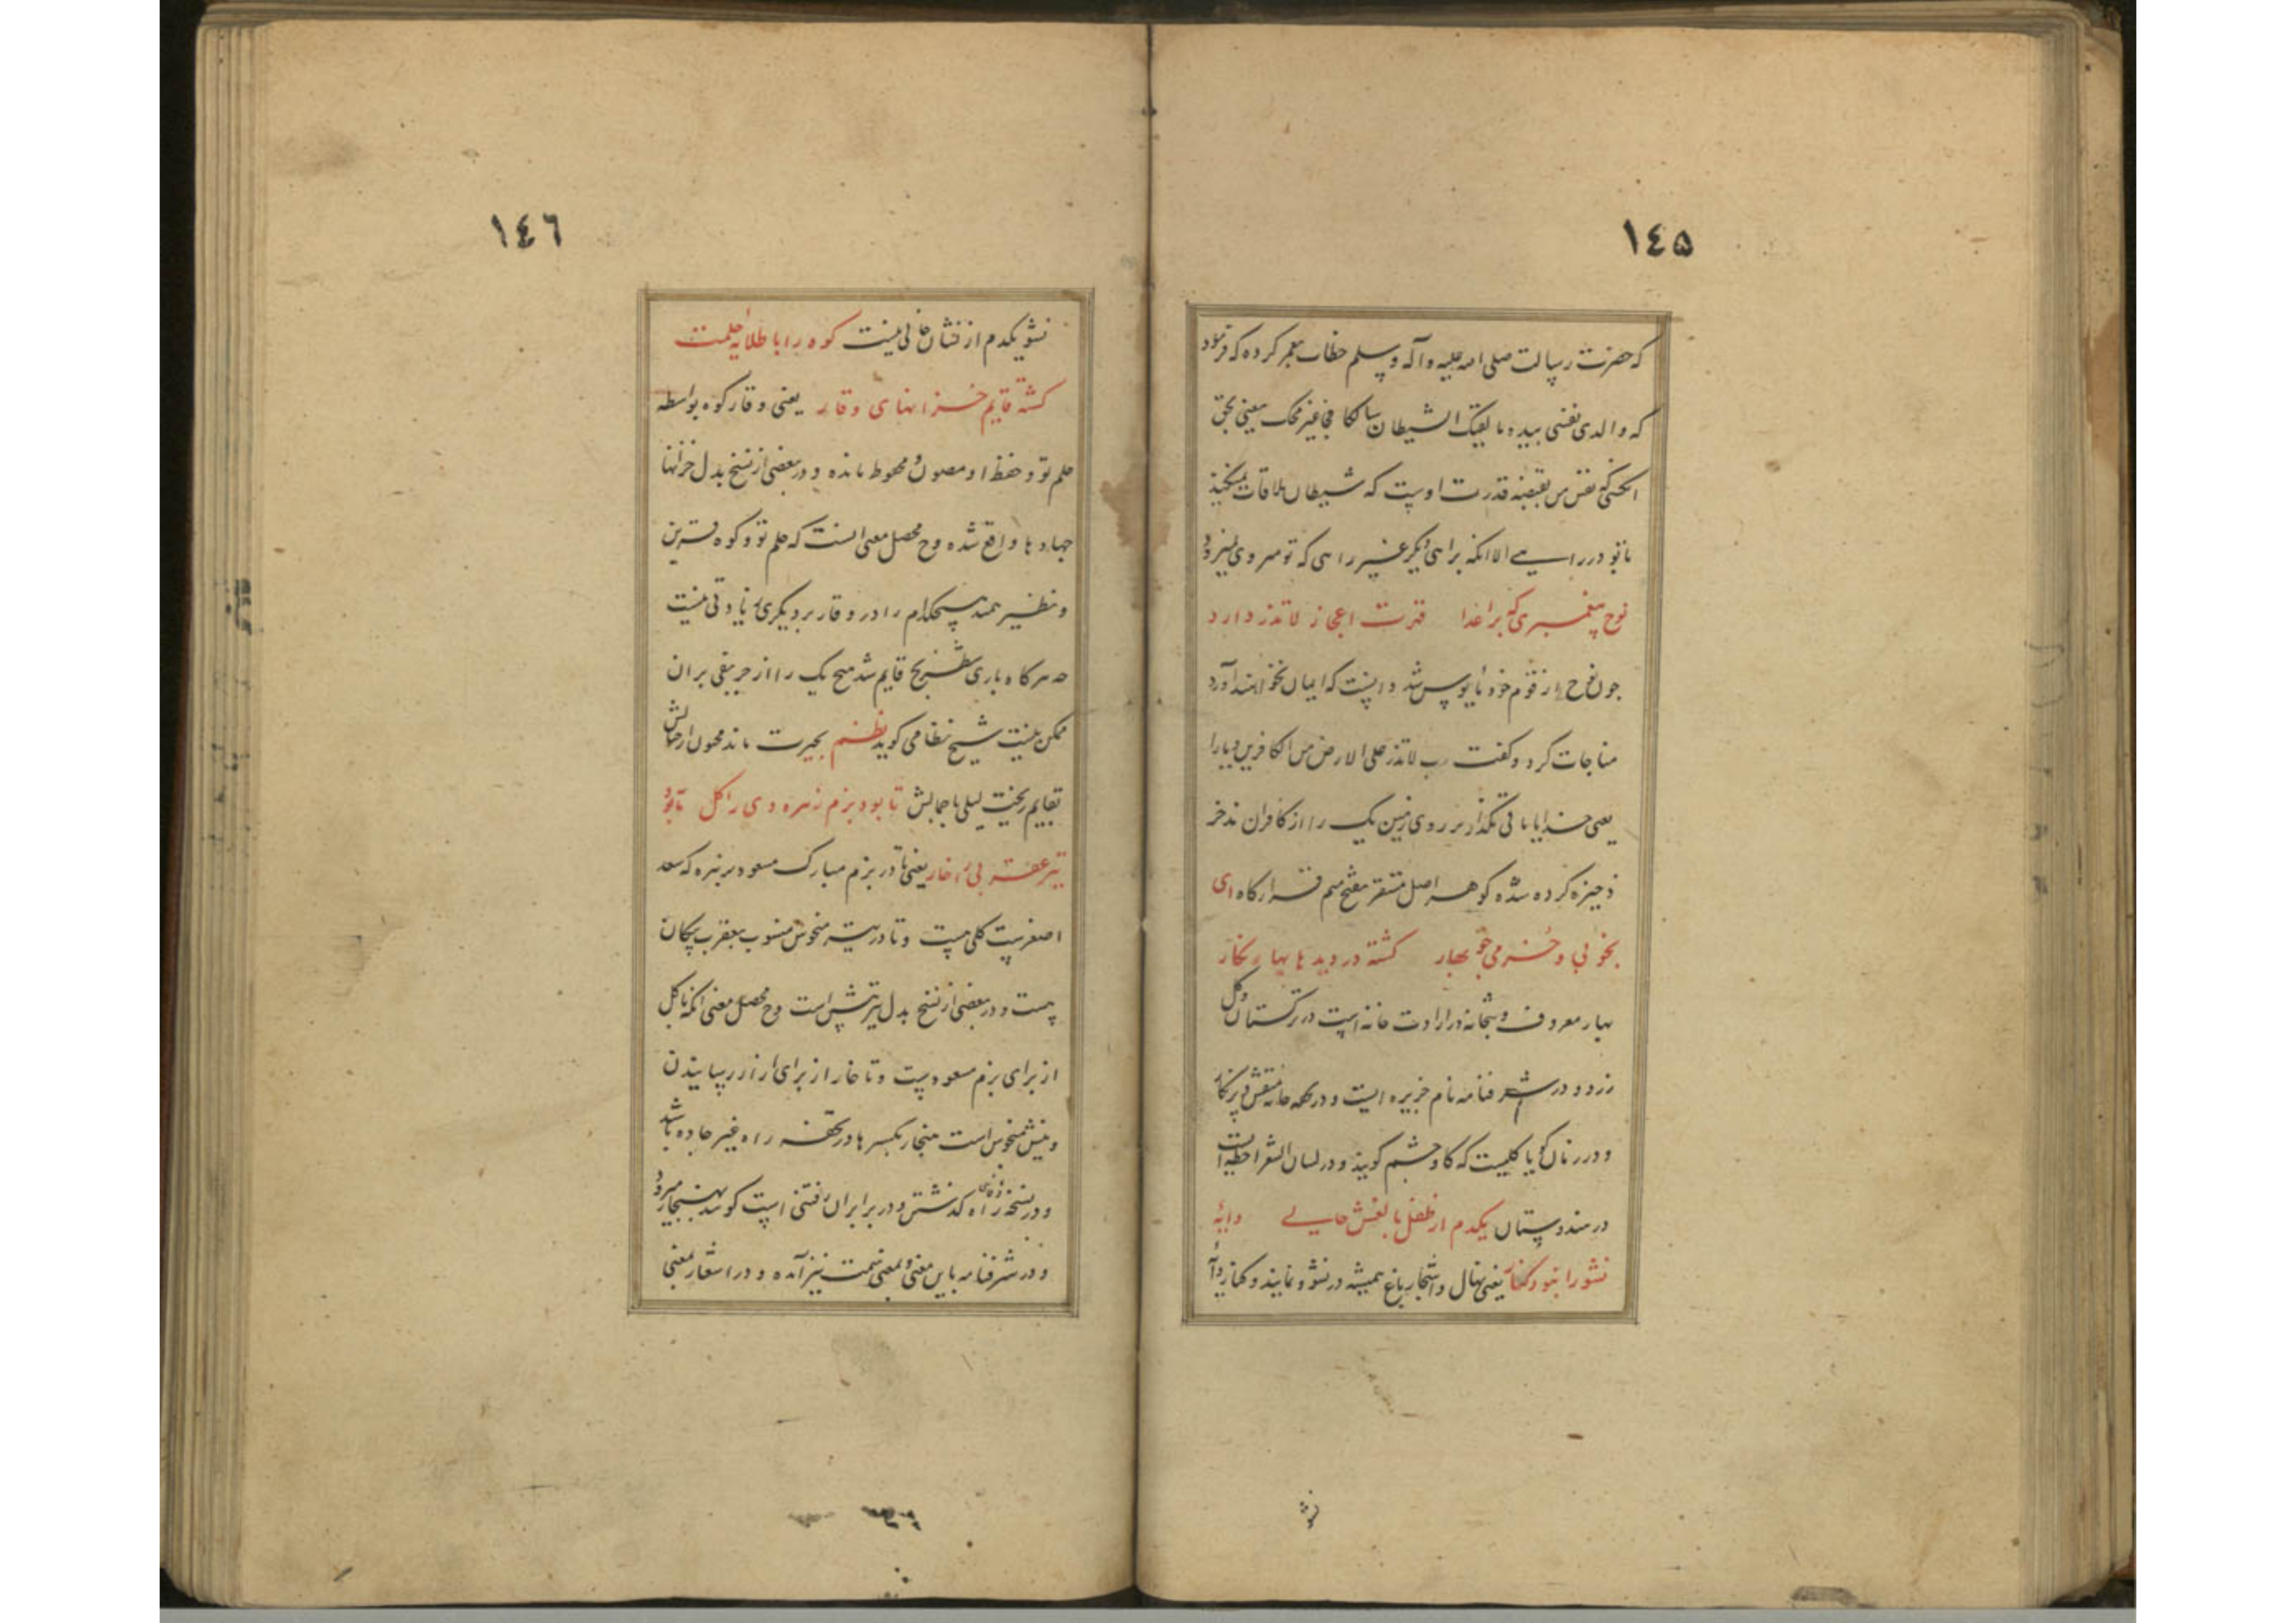 ١٤٥
که حضرت رسالت صلی الله علیه وآله وسلم خطاب بعمر کرده که فرمود
که والذی نفسی بیده ما لقیک الشیطان سالکا فجا غیر فجک یعنی بحق
انکسی که نفس من بقبضه قدرت اوست که شیطان ملاقات نمیکند
با تو در راهی الا انکه براهی دیگر غیر راهی که تو میروی میرود
نوح پیغمبری که بر اعدا قدرت اعجاز لاتذر دارد
چون نوح از قوم خود مایوس شد دانست که ایمان نخواهند آورد
مناجات کرد و گفت رب لا تذر علی الارض من الکافرین دیارا
یعنی خدایا باقی نگذار بر روی زمین یک را از کافران مذخر
ذخیره کرده شده گوهر اصل مستقر بفتح میم قرارگاه ای
بخوبی و خرمی چو بهار گشته در دیدها بهار نگار
بهار معروف و بتخانه در ارادت خانه ایست در ترکستان و گل
زرد و در شرفنامه نام جزیره ایست و در همه خانه منقش و پرنگار
و در زنان گویا گلیست که گاوچشم گویند و در لسان الشعرا خطیه است
در هندوستان یکدم از طفل با لغش خالی دایه
نشو را نبود کنار یعنی نهال و اشجار باغ همیشه در نشو و نمایند و کنار دایه
نشو
١٤٦
نشو یکدم از فتشان خالی نیست کوه را با طلایه حلمت
گشته قایم خزانهای وقار یعنی وقار کوه بواسطه
حلم تو و حفظ او مصون و محوط مانده و در بعضی از نسخ بدل خزانها
جهادها واقع شده وح محصل معنی انست که حلم تو و کوه قرین
و نظیر همند هیچکدام را در وقار بر دیگری زیادتی نیست
هرگاه بازی شطرنج قایم شد هیچ یک را از حریفی بر ان
ممکن نیست شیخ نظامی گوید نظم بحیرت ماند مجنون از خیالش
بقایم ریخت لیلی با جمالش تا بود بزم زهره وی را گل تا بود
تیر عقرب بی را خار یعنی تا در بزم مبارک مسعود بر زهره که سعد
اصغر است گلی هست و تا در تیر منحوس منسوب بعقرب پیکان
هست و در بعضی از نسخ بدل تیر نیش است وح محصل معنی انکه تا گل
از برای بزم مسعود هست و تا خار از برای ازار رسانیدن
و نیش منحوس است هنجار بکسر ها در تحفه راه غیر جاده باشد
و در نسخه راه گذشتن و در برابر ان رفتنی است گویند بهنجار میرود
و در شرفنامه باین معنی و بمعنی سمت نیز آمده و در اشعار بمعنی